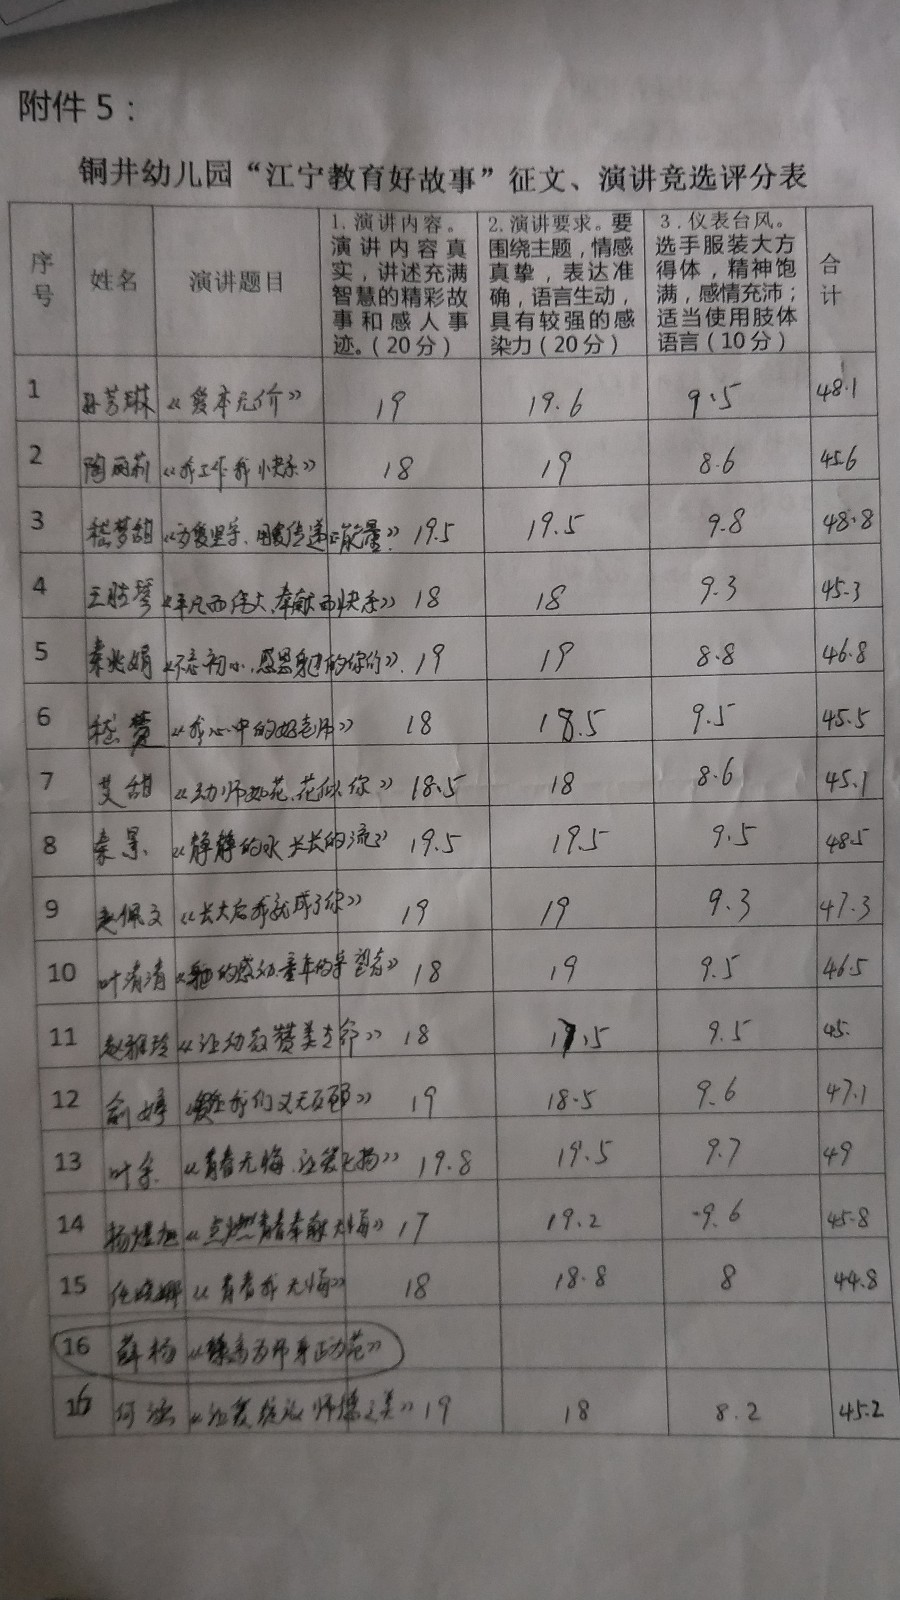 附件5：
铜井幼儿园“江宁教育好故事”征文、演讲竞选评分表
序号 姓名 演讲题目 1.演讲内容。演讲内容真实，讲述充满智慧的精彩故事和感人事迹。（20分） 2.演讲要求。要围绕主题，情感真挚，表达准确，语言生动，具有较强的感染力（20分） 3.仪表台风。选手服装大方得体，精神饱满，感情充沛；适当使用肢体语言（10分） 合计
1 孙芳琳 《爱本无价》 19 19.6 9.5 48.1
2 陶丽莉 《我工作我快乐》 18 19 8.6 45.6
3 嵇梦甜 《为爱坚守、用爱传递正能量》 19.5 19.5 9.8 48.8
4 王胜琴 《平凡而伟大、奉献而快乐》 18 18 9.3 45.3
5 秦兆娟 《不忘初心,感恩身边的你们》 19 19 8.8 46.8
6 嵇赞 《我心中的好老师》 18 18.5 9.5 45.5
7 艾甜 《幼师如花、花似你》 18.5 18 8.6 45.1
8 秦景 《静静的水 长长的流》 19.5 19.5 9.5 48.5
9 赵佩文 《长大后我就成了你》 19 19 9.3 47.3
10 叶清清 《的感动、童年的守望者》 18 19 9.5 46.5
11 赵雅玲 《让幼教赞美生命》 18 17.5 9.5 45.
12 俞婷 《爱让我们义无反顾》 19 18.5 9.6 47.1
13 叶 《青春无悔、让爱飞扬》 19.8 19.5 9.7 49
14 杨旭 《点燃青春奉献无悔》 17 19.2 9.6 45.8
15 任晓娜 《青春我无悔》 18 18.8 8 44.8
16 薛杨 《高为师身正为范》
16 何 《让爱绽放师德之美》 19 18 8.2 45.2